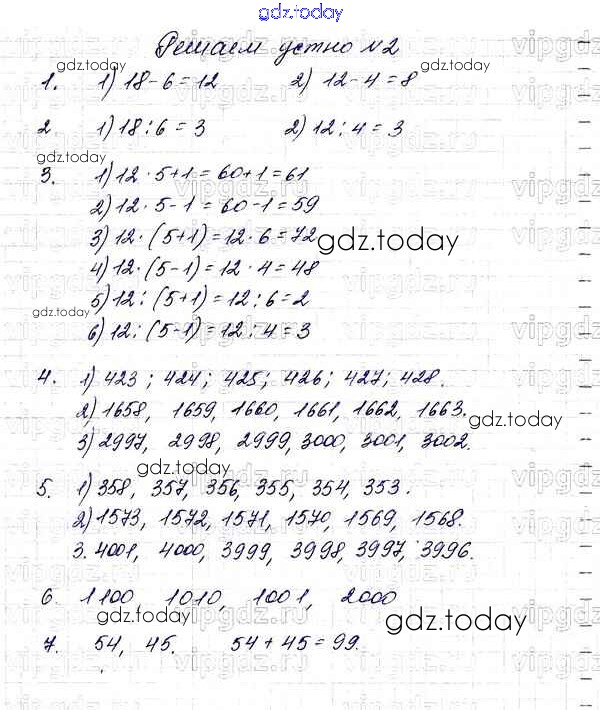 gdz.today
Решаем устно №2
gdz.today
1. 1) 18-6=12 2) 12-4=8
2 1) 18:6=3 2) 12:4=3
gdz.today
3. 1) 12·5+1=60+1=61
2) 12·5-1=60-1=59
3) 12·(5+1)=12·6=72
gdz.today
4) 12·(5-1)=12·4=48
5) 12:(5+1)=12:6=2
gdz.today
6) 12:(5-1)=12:4=3
4. 1) 423; 424; 425; 426; 427; 428.
2) 1658, 1659, 1660, 1661, 1662, 1663.
gdz.today
3) 2997, 2998, 2999, 3000, 3001, 3002.
gdz.today
5. 1) 358, 357, 356, 355, 354, 353.
2) 1573, 1572, 1571, 1570, 1569, 1568.
3. 4001, 4000, 3999, 3998, 3997, 3996.
6. 1100 1010, 1001, 2000
gdz.today
gdz.today
7. 54, 45. 54+45=99.